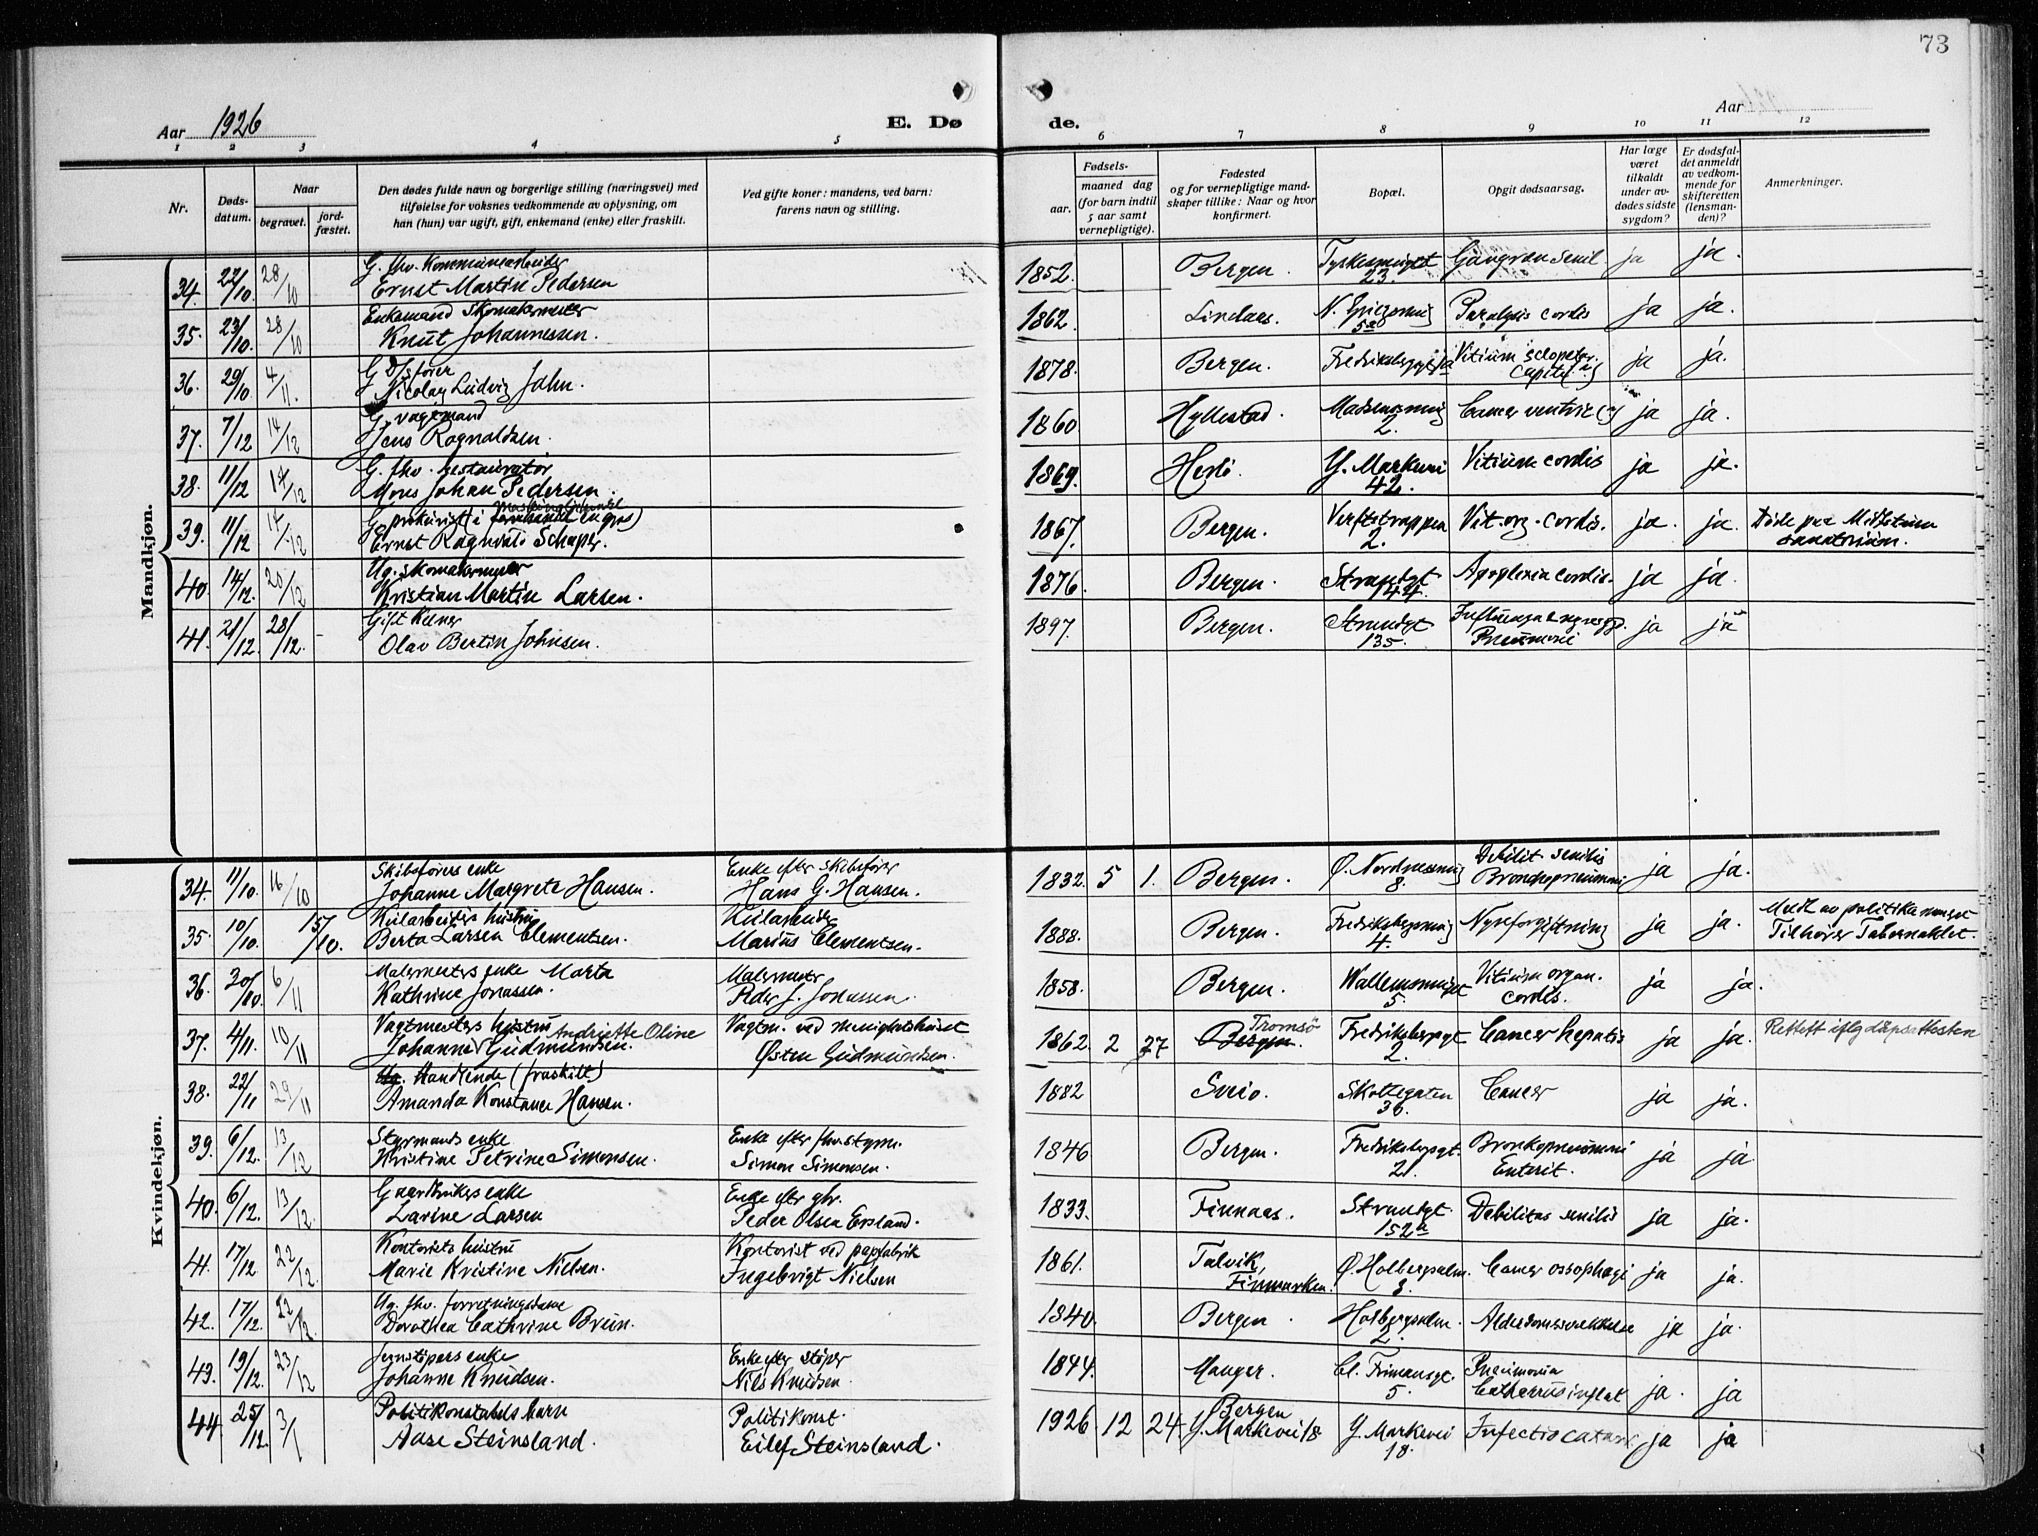 73
Aar 1926
E. Dø
de.
Aar
1 2 3 4 5
6 7 8 9 10 11 12
Nr.
Døds-
datum.
Naar
begravet.
jord-
fæstet.
Den dødes fulde navn og borgerlige stilling (næringsvei) med
tilføielse for voksnes vedkommende av oplysning, om
han (hun) var ugift, gift, enkemand (enke) eller fraskilt.
Ved gifte koner: mandens, ved barn:
farens navn og stilling.
Fødsels-
aar.
maaned dag
(for barn indtil
5 aar samt
vernepligtige).
Fødested
og for vernepligtige mand-
skaper tillike: Naar og hvor
konfirmert.
Bopæl.
Opgit dødsaarsag.
Har læge
været
tilkaldt
under av-
dødes sidste
sygdom?
Er dødsfal-
det anmeldt
av vedkom-
mende for
skifteretten
(lensman-
den)?
Anmerkninger.
Mandkjøn.
G. fhv. Kommunearbeider
34. 22/10. 28/10 Ernst Martin Pedersen 1852. Bergen. 23. Gangræn senil ja ja.
Enkemand Skomakermester
35. 23/10. 28/10 Knut Johannessen. 1862. Lindaas. 5a Paralysis cordis ja ja.
36. 29/10 4/11. Nicolay Ludvig Jahn. 1878. Bergen. Vitium ja ja.
G. vagtmand
37. 7/12 14/12 Jens Ragnaldsen. 1860. Hyllestad. 2. Cancer ventric ja ja.
G. fhv. restauratør
38. 11/12 17/12 Mons Johan Pedersen 1869. Herlø. Y. Markvei 42. Vitium cordis ja ja.
G. prokurist i
39. 11/12 17/12 Ernst Ragnvald Schaper. 1867. Bergen. Verftstrappen 2. Vit. org. cordis. ja. ja. Døde paa
sanatorium.
Ug. skomakermester
40. 14/12. 20/12 Kristian Martin Larsen. 1876. Bergen. Strandgt 144. Apoplexia cordis. ja ja.
Gift Kelner
41. 21/12. 28/12. Olav Bertin Johnsen. 1897. Bergen. Strandgt 135. Influenza Pneumoni ja ja
Kvindekjøn.
Skibsførers enke Enke efter skibsfører Debilit senilis
34. 11/10. 16/10 Johanne Margrete Hansen. Hans G. Hansen. 1832. 5 1. Bergen. Ø. Nordnæsvei 8. Bronchopneumoni ja ja.
Kularbeiders hustru Kularbeider
35. 10/10. 15/10. Berta Larsen Clementsen. Marius Clementsen. 1888. Bergen. 4. Nyreforgiftning ja ja. Meldt av politikammeret
Tilhører Tabernaklet.
Malermesters enke Marta Malermester Vitium organ.
36. 20/10. 6/11 Kathrine Jonassen. Peder J. Jonassen. 1858. Bergen. 5. cordis. ja ja.
Vagtmesters hustru Andriette Oline Vagtm. ved menighetshuset Tromsø
37. 4/11. 10/11 Johanne Gudmundsen. Østen Gudmundsen. 1862. 2 27 Bergen. Fredriksbergsgt 2. Cancer hepatis ja ja. Rettet iflg dåpsattesten
Ug. Handlende (fraskilt)
38. 22/11 29/11 Amanda Konstance Hansen. 1882 Sveio. Skottegaten 36. Cancer ja ja.
Styrmands enke Enke efter fhv. styrm.
39. 6/12. 13/12 Kristine Petrine Simonsen. Simon Simonsen. 1846 Bergen. Fredriksbergsgt. 21. Bronkopneumoni Enterit. ja ja
Gaardbrukers enke Enke efter gbr.
40. 6/12. 13/12. Larine Larsen Peder Olsen Ersland. 1833. Finnaas. Strandgt. 152a Debilitas senilis ja ja.
Kontorists hustru Kontorist ved papfabrik
41. 17/12 22/12. Marie Kristine Nielsen. Ingebrigt Nielsen 1861. Talvik, Finmarken. Ø. Holbergsalm. 3. Cancer ossophagi ja ja.
Ug. fhv. forretningsdame
42. 17/12. 22/12 Dorothea Cathrine Brun. 1840. Bergen. Holbergsalm. 2. Alderdomssvækkelse ja ja.
Enke efter støper
43. 19/12. 23/12 Johanne Knudsen. Nils Knudsen. 1844. Manger. Cl. Frimansgt. 5. Pneumonia ja. ja
Politikonstabels barn Politikonst. Bergen
44. 25/12. 3/1 Aase Steinsland. Eilef Steinsland. 1926 12 24. Y. Markevei 18 Y. Markevei 18. Infectio ja ja